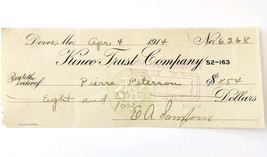 Dover, Me, Apr 4 1914 No. 6268
Kineo Trust Company 52-163
Pay to the order of Pierre Peterson $8.54
Eight and 54/100 Dollars